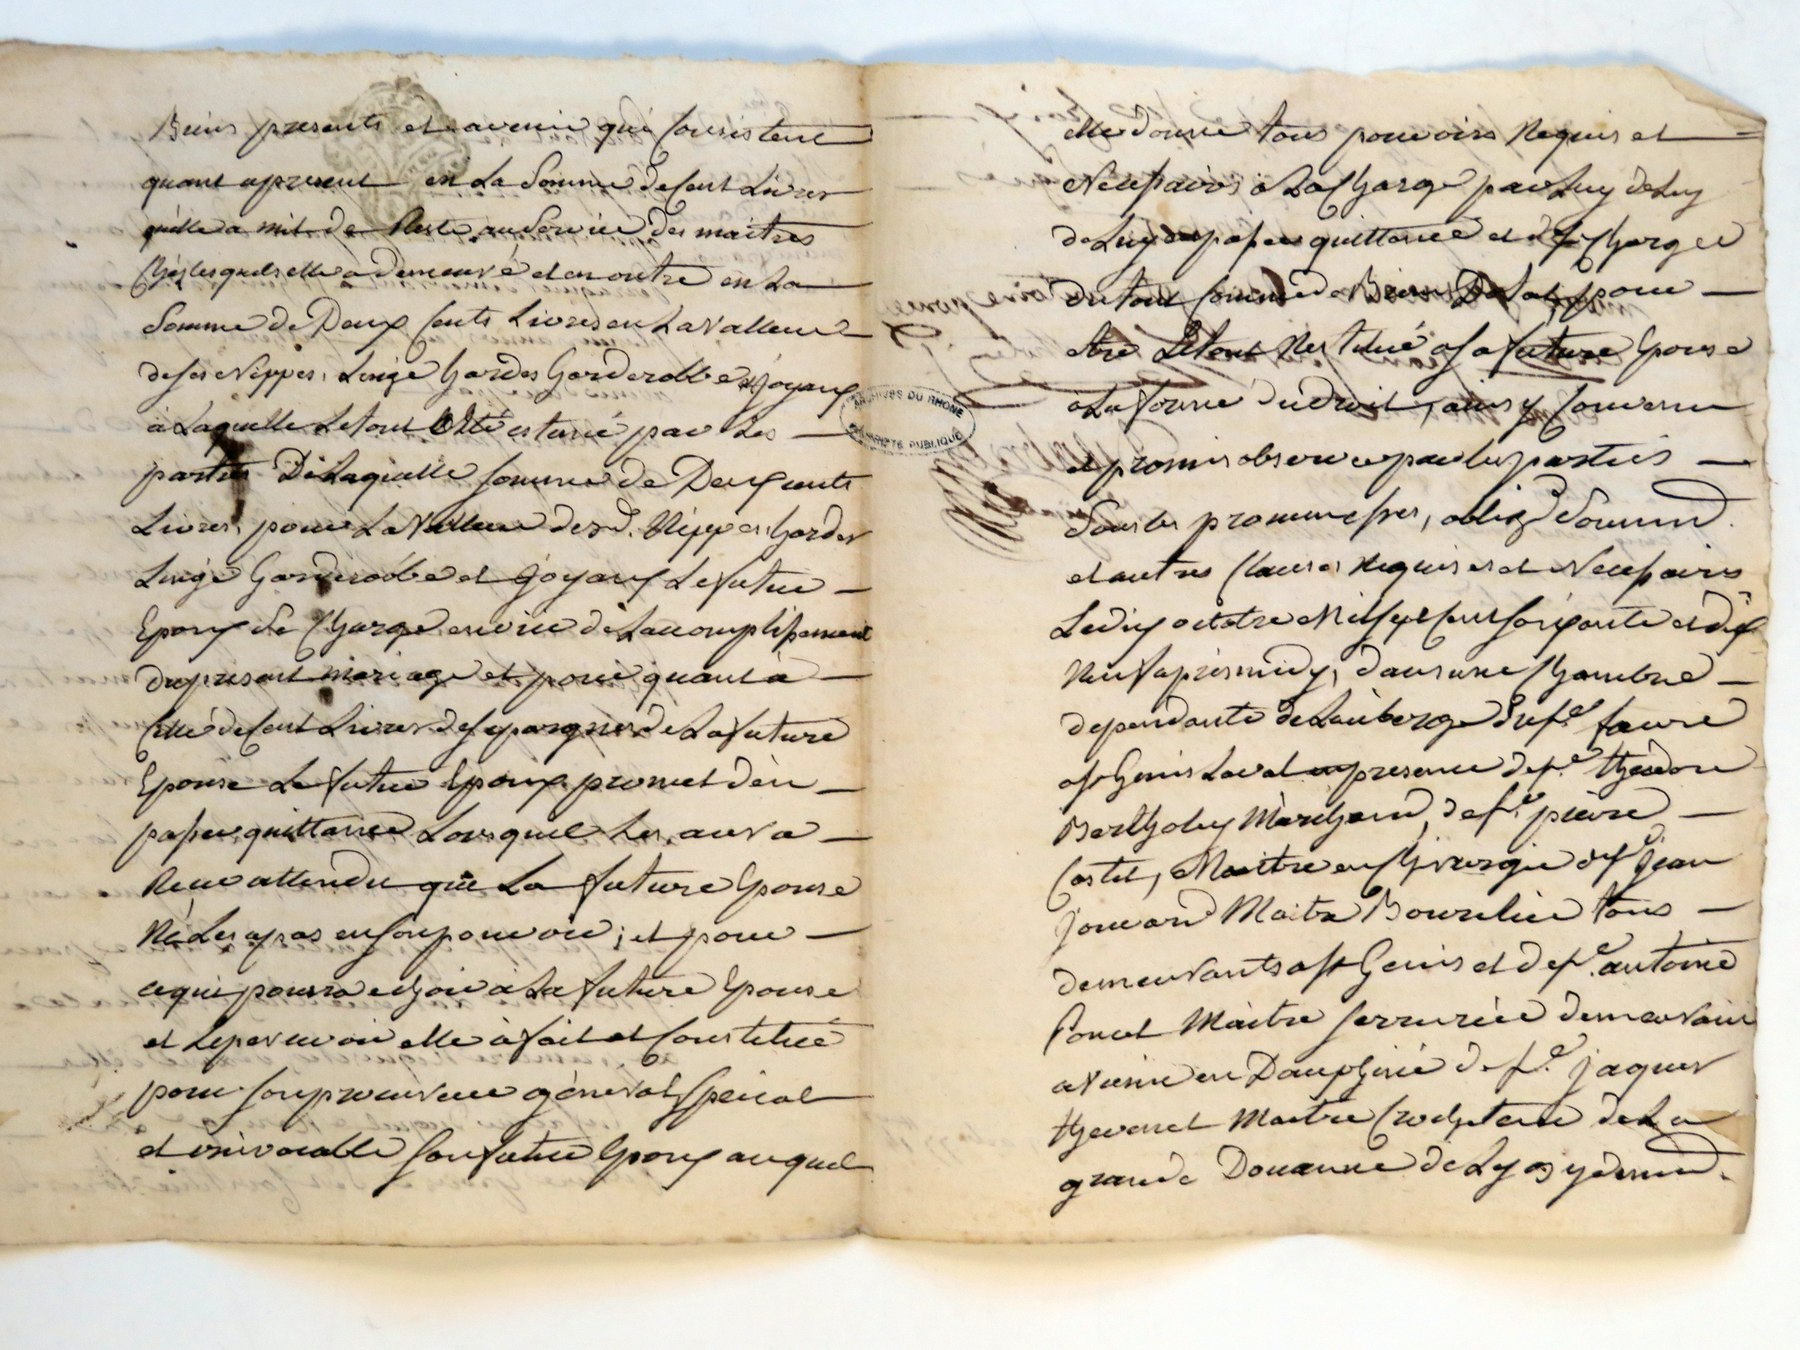 Biens presents et avenir qui Consistent
quant apresent en La Somme de Cent Livres
quelle a mit de Reste au Service des maitres
Chés lesquels elle a demeuré et en outre en La
Somme de Deux Cents Livres en La Valleur
de ses Nippes, Linge hardes Garderobbe et Joyaux
a Laquelle Le tout a Eté estimé par Les
parties De Laquelle somme de Deux cents
Livres, pour La Valleur desd. Nippes hardes
Linge Garderobe et Joyaux Le futur
Epoux se Charge en vue de Laccomplissement
du present mariage et pour quant à
Celle de Cent Livres desepargnes de La future
Epouse Le futur Epoux promet d'en
passer quittance Lorsquil Les aura
Reçu attendu que La future Epouse
Ne Les a pas en son pouvoir; et pour
ce qui pourra echoir à La future Epouse
et Le percevoir elle à fait et Constitué
pour son procureur général, Special
et irrévocable son futur Epoux auquel
elle donne tous pouvoirs Requis et
Necessaires à La Charge par Luy de Luy
de Luy en passer quittance et de se Charger
du tout Comme de Bien Dotal, pour
etre Le tout Restitué a sa future Epouse
à La forme du droit, ainsy Convenu
et promis observer par les parties
Sous les promesses, oblig.d Soumd.
et autres Clauses Requises et Necessaires
Le dix octobre Mil sept Cent soixante et dix
Neuf apres midy, dans une Chambre
dependante de Lauberge du sr. faure
a st Genis Laval en presence de sr. théodore
Bertholey Marchand, de sr. pierre
Castel, Maitre en Chirurgie de sr. Jean
Jouvard Maitre Bourelier tous
demeurants a st Genis et de sr. antoine
Poncet Maitre serrurier demeurant
a vienne en Dauphiné de sr. Jaques
thevenet Maitre Crocheteur de La
grande Douanne de Lyon y demd.
ARCHIVES DU RHONE